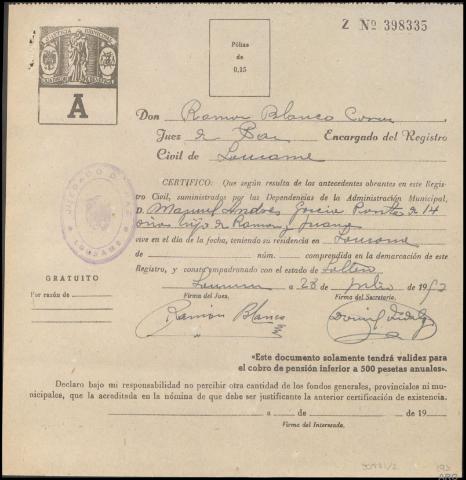 Z Nº 398335
JUSTICIA MUNICIPAL
A
Póliza
de
0,15
Don Ramon Blanco
Juez de Paz Encargado del Registro
Civil de Lousame
JUZGADO D
LOUSAME
CERTIFICO: Que según resulta de los antecedentes obrantes en este Regis-
tro Civil, suministrados por las Dependencias de la Administración Municipal,
D. Manuel Andrés Garcia de 14
años hijo de Ramon y Juana
vive en el día de la fecha, teniendo su residencia en Lousame
de núm. comprendida en la demarcación de este
Registro, y consta empadronado con el estado de soltero
Lousame a 28 de Julio de 195
Firma del Juez. Firma del Secretario.
Ramón Blanco
GRATUITO
Por razón de
«Este documento solamente tendrá validez para
el cobro de pensión inferior a 500 pesetas anuales».
Declaro bajo mi responsabilidad no percibir otra cantidad de los fondos generales, provinciales ni mu-
nicipales, que la acreditada en la nómina de que debe ser justificante la anterior certificación de existencia.
a de de 19
Firma del Interesado.